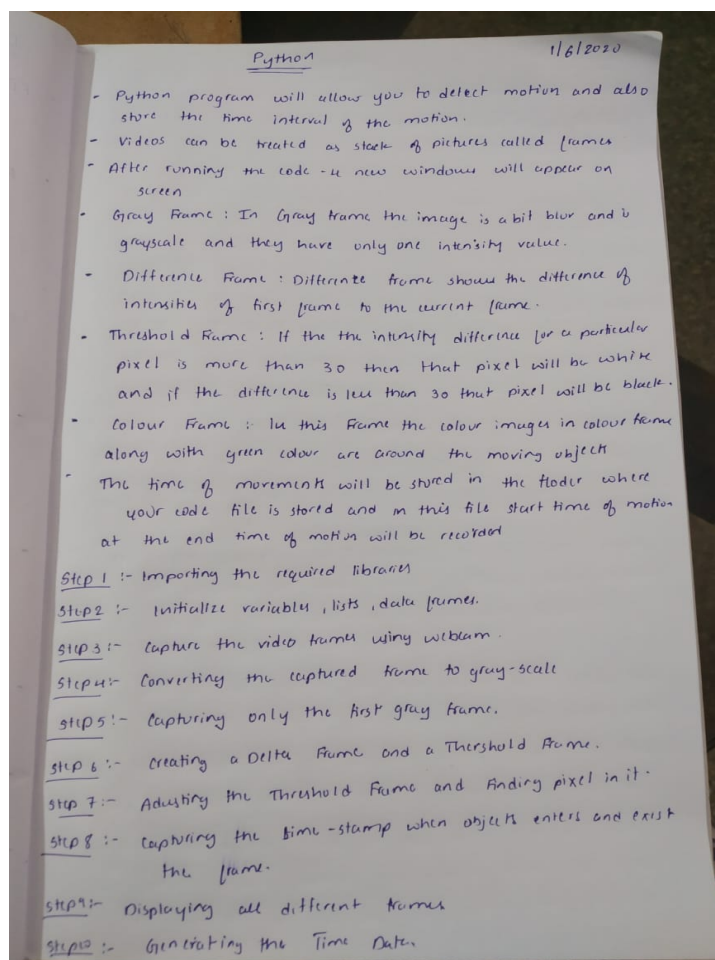 Python
1/6/2020
- Python program will allow you to detect motion and also
store the time interval of the motion.
- Videos can be treated as stack of pictures called frames
- After running the code - 4 new windows will appear on
screen
- Gray Frame : In Gray frame the image is a bit blur and is
grayscale and they have only one intensity value.
- Difference Frame : Difference frame shows the difference of
intensities of first frame to the current frame.
- Threshold Frame : If the the intensity difference for a particular
pixel is more than 30 then that pixel will be white
and if the difference is less than 30 that pixel will be black.
- Colour Frame :- In this Frame the colour images in colour frame
along with green colour are around the moving objects
- The time of movements will be stored in the floder where
your code file is stored and in this file start time of motion
at the end time of motion will be recorded
Step 1 :- Importing the required libraries
Step 2 :- Initialize variables, lists, data frames.
Step 3 :- Capture the video frames using webcam.
Step 4 :- Converting the captured frame to gray-scale
Step 5 :- Capturing only the first gray frame.
Step 6 :- Creating a Delta Frame and a Thershold Frame.
Step 7 :- Adusting the Threshold Frame and Finding pixel in it.
Step 8 :- Capturing the time-stamp when objects enters and exist
the frame.
Step 9 :- Displaying all different frames
Step 10 :- Generating the Time Data.